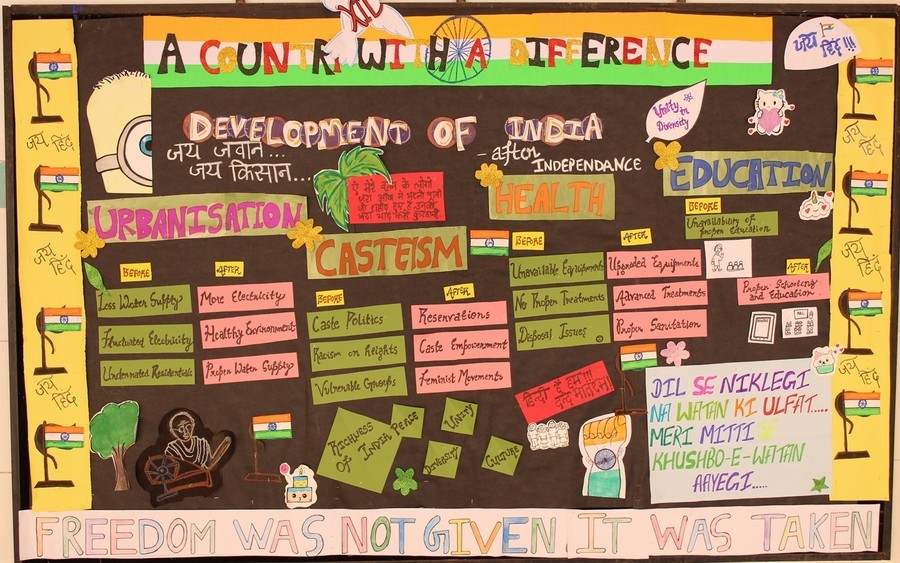 XII
A COUNTRY WITH A DIFFERENCE
जय हिंद!!!
DEVELOPMENT OF INDIA
after INDEPENDANCE
जय जवान...
जय किसान...
Unity in Diversity
ऐ मेरे वतन के लोगों
जरा आँख में भरलो पानी
जो शहीद हुए है उनकी
जरा याद करो कुरबानी
URBANISATION
BEFORE
AFTER
Less Water Supply
More Electricity
Fluctuated Electricity
Healthy Environment
Undernated Residentials
Proper Water Supply
CASTEISM
BEFORE
AFTER
Caste Politics
Reservations
Racism on heights
Caste Empowerment
Vulnerable Groups
Feminist Movements
HEALTH
BEFORE
AFTER
Unavailable Equipments
Upgraded Equipments
No Proper Treatments
Advanced Treatments
Disposal Issues
Proper Sanitation
EDUCATION
BEFORE
Unavailability of
Proper Education
AFTER
Proper Schooling
and Education
RICHNESS
OF INDIA
PEACE
UNITY
DIVERSITY
CULTURE
हिन्दी है हम!!!
वन्दे मातरम!
DIL SE NIKLEGI
NA WATAN KI ULFAT....
MERI MITTI SE
KHUSHBO-E-WATAN
AAYEGI.....
जय हिंद
जय हिंद
जय हिंद
जय हिंद
जय हिंद
जय हिंद
FREEDOM WAS NOT GIVEN IT WAS TAKEN